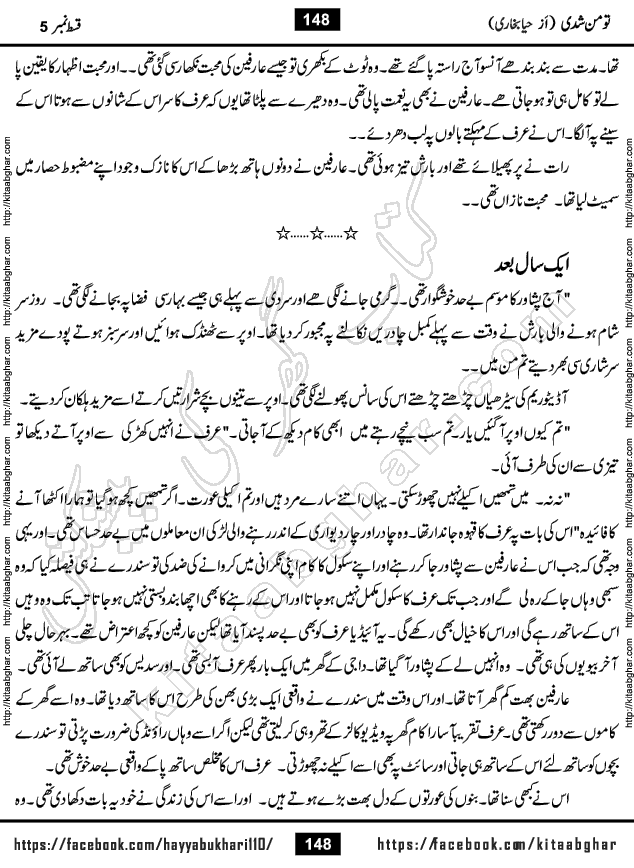 تو من شدی (از حیا بخاری)
148
قسط نمبر 5
تھا۔ مدت سے بند بندھے آنسو آج راستہ پا گئے تھے۔ وہ ٹوٹ کے بکھری تو جیسے عارفین کی محبت نکھار سی گئی تھی۔۔ اور محبت اظہار کا یقین پا
لے تو کامل ہی تو ہو جاتی ھے۔ عارفین نے بھی یہ نعمت پالی تھی۔ وہ دھیرے سے پلٹا تھا یوں کہ عرف کا سر اس کے شانوں سے ہوتا اس کے
سینے پہ آلگا۔ اس نے عرف کے مہکتے بالوں پہ لب دھر دئے۔۔
رات نے پر پھیلائے تھے اور بارش تیز ہوئی تھی۔ عارفین نے دونوں ہاتھ بڑھا کے اس کا نازک وجود اپنے مضبوط حصار میں
سمیٹ لیا تھا۔ محبت نازاں تھی۔۔
☆......☆......☆
ایک سال بعد
"آج پشاور کا موسم بے حد خوشگوار تھی۔۔ گرمی جانے لگی ھے اور سردی سے پہلے ہی جیسے بہار سی فضا پہ بجانے لگی تھی۔ روز سر
شام ہونے والی بارش نے وقت سے پہلے کمبل چادریں نکالنے پہ مجبور کر دیا تھا۔ اوپر سے ٹھنڈک ہوائیں اور سر سبز ہوتے پودے مزید
سرشاری سی بھر دیتے تم من میں۔۔
آڈیٹوریم کی سیڑھیاں چڑھتے چڑھتے اس کی سانس پھولنے لگی تھی۔ اوپر سے تینوں بچے شرارتیں کرتے اسے مزید ہلکان کر دیتے۔
"تم کیوں اوپر آ گئیں یار۔ تم سب نیچے رہتے میں ابھی کام دیکھ کے آ جاتی۔" عرف نے انہیں کھڑکی سے اوپر آتے دیکھا تو
تیزی سے ان کی طرف آئی۔
"نہ نہ۔ میں تمھیں اکیلے نہیں چھوڑ سکتی۔ یہاں اتنے سارے مرد ہیں اور تم اکیلی عورت۔ اگر تمھیں کچھ ہو گیا تو ہمارا اکٹھا آنے
کا فائیدہ" اس کی بات پہ عرف کا قہوہ جاندار تھا۔ وہ چادر اور چار دیواری کے اندر رہنے والی لڑکی ان معاملوں میں بے حد حساس تھی۔ اور یہی
وجہ تھی کہ جب اس نے عارفین سے پشاور جا کر رہنے اور اپنے سکول کا کام اپنی نگرانی میں کروانے کی ضد کی تو سندرے نے ہی فیصلہ کیا کہ وہ
سبھی وہاں جا کے رہ لی گے اور جب تک عرف کا سکول مکمل نہیں ہو جاتا اور اس کے رہنے کا بھی اچھا بندوبستی نہیں ہو جاتا تب تک وہ وہیں
اس کے ساتھ رہے گی اور اس کا خیال بھی رکھے گی۔ یہ آئیڈیا عرف کو بھی بے حد پسند آیا تھا لیکن عارفین کو کچھ اعتراض تھے۔ بہر حال چلی
آخر بیویوں کی ہی تھی۔ وہ انہیں لے کے پشاور آ گیا تھا۔ داجی کے گھر میں ایک بار پھر عرف آ بسی تھی۔ اور سدیس کو بھی ساتھ لے آئی تھی۔
عارفین بھت کم گھر آتا تھا۔ اور اس وقت میں سندرے نے واقعی ایک بڑی بھن کی طرح اس کا ساتھ دیا تھا۔ وہ اسے گھر کے
کاموں سے دور رکھتی تھی۔ عرف تقریباً سارا کام گھر پہ ویڈیو کالز کے تھرو ہی کر لیتی تھی لیکن اگر اسے وہاں راؤنڈ کی ضرورت پڑتی تو سندرے
بچوں کو ساتھ لئے اس کے ساتھ ہی جاتی اور سائٹ پہ بھی اسے اکیلے نہ چھوڑتی۔ عرف اس کا مخلص ساتھ پا کے واقعی بے حد خوش تھی۔
اس نے کبھی سنا تھا۔ بنوں کی عورتوں کے دل بھت بڑے ہوتے ہیں۔ اور اسے اس کی زندگی نے خود یہ بات دکھا دی تھی۔ وہ
https://facebook.com/hayyabukhari110/
148
https://facebook.com/kitaabghar
http://kitaabghar.com
کتاب گھر کی پیشکش
kitaabghar.com